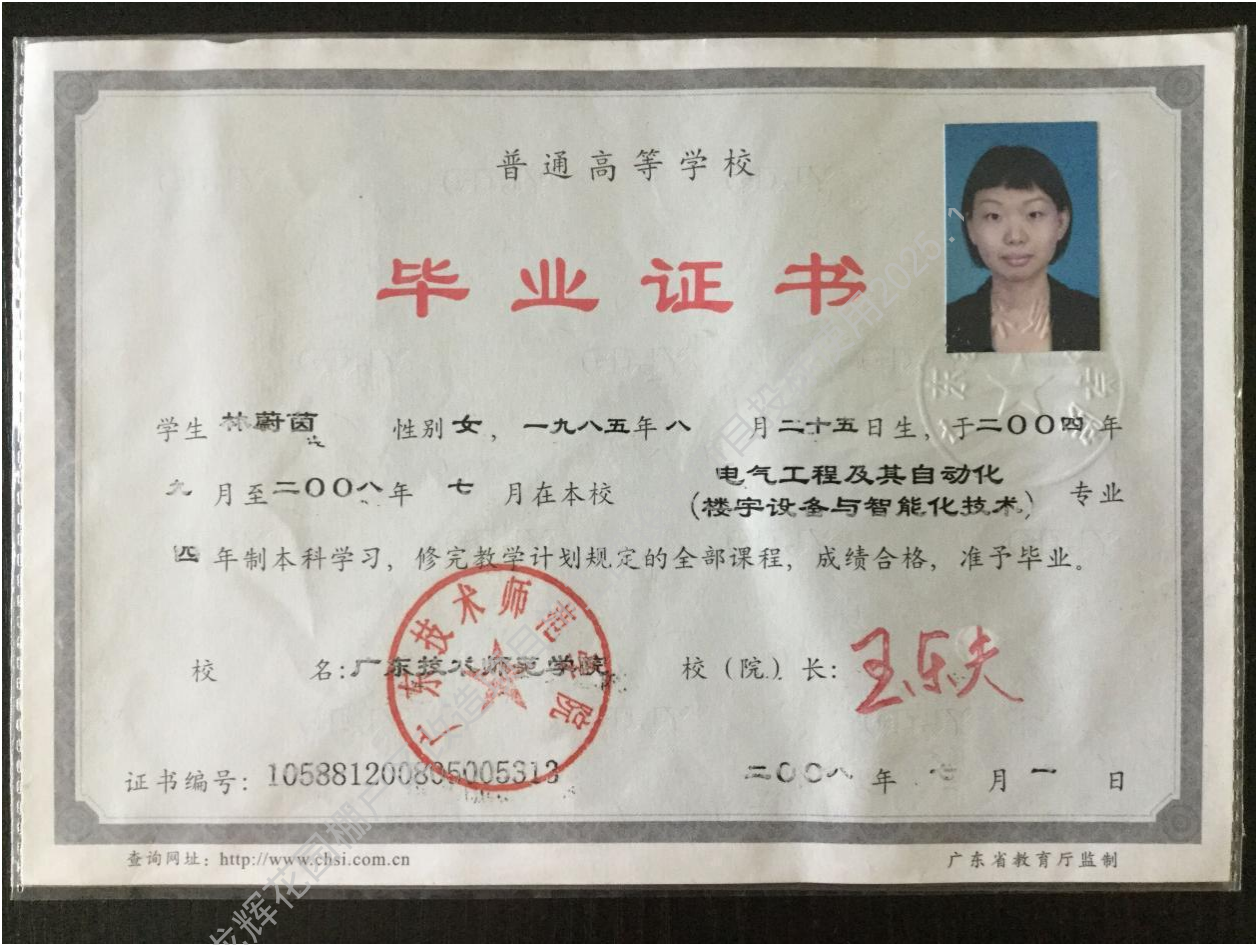 普通高等学校
毕业证书
学生 林蔚茵 性别 女，一九八五年八 月二十五日生，于二〇〇四年
九 月至二〇〇八年 七 月在本校 电气工程及其自动化
（楼宇设备与智能化技术） 专业
四 年制本科学习，修完教学计划规定的全部课程，成绩合格，准予毕业。
校 名：广东技术师范学院 校（院）长：王乐夫
广东技术师范学院
证书编号：105881200805005313 二〇〇八 年 七 月 一 日
查询网址：http://www.chsi.com.cn 广东省教育厅监制